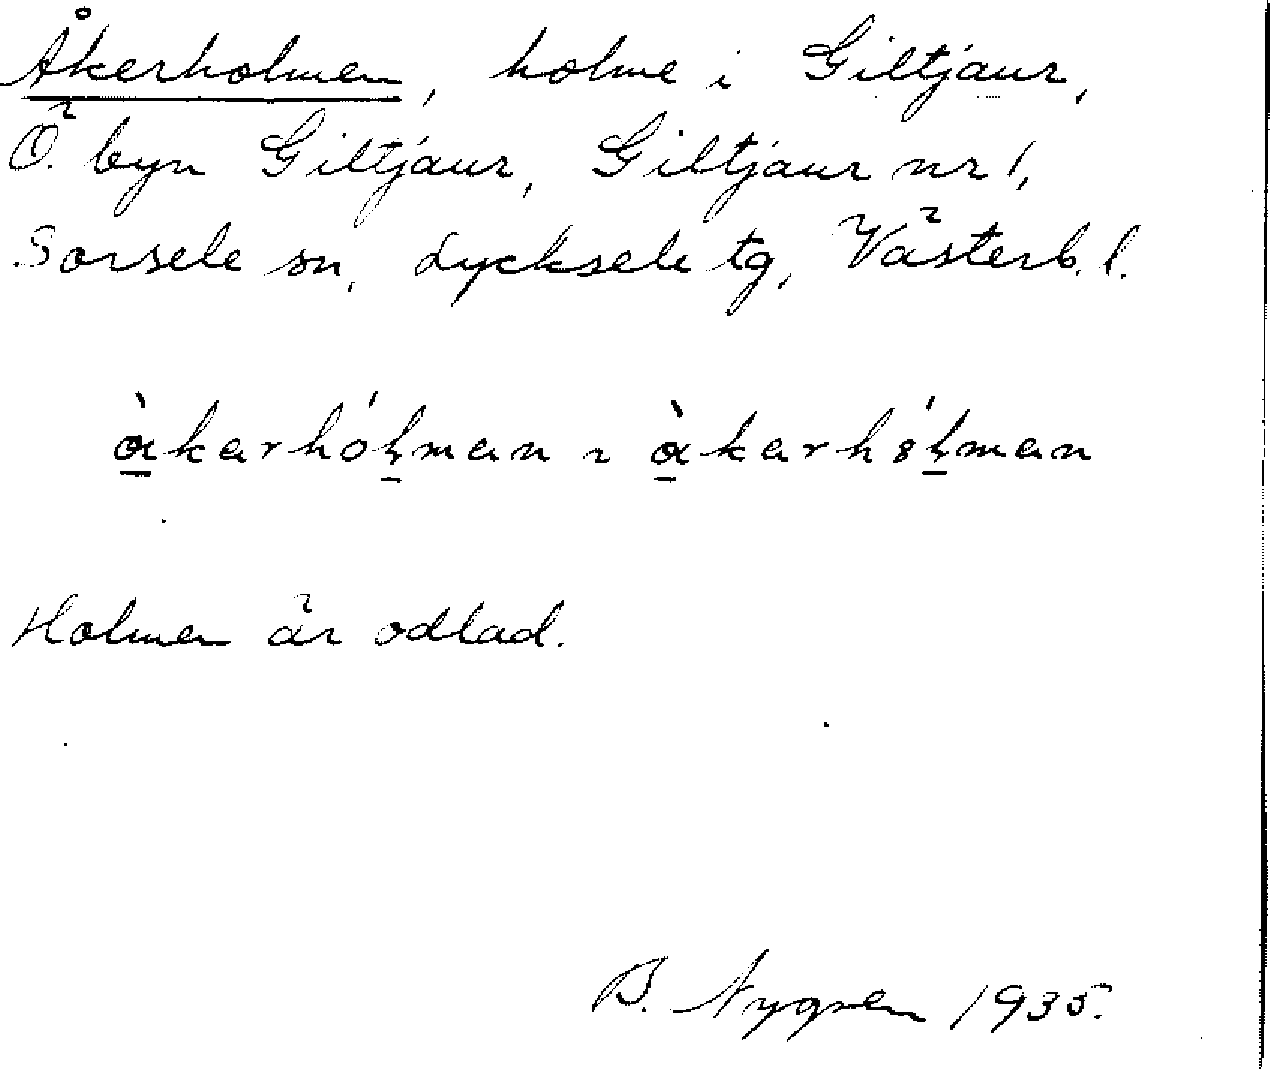 Åkerholmen, holme i Giltjaur,
Ö. byn Giltjaur, Giltjaur nr 1,
Sorsele sn, Lycksele tg, Västerb. l.
àkarhóļman ~ àkarhǿļman
Holmen är odlad.
B. Nygren 1935.